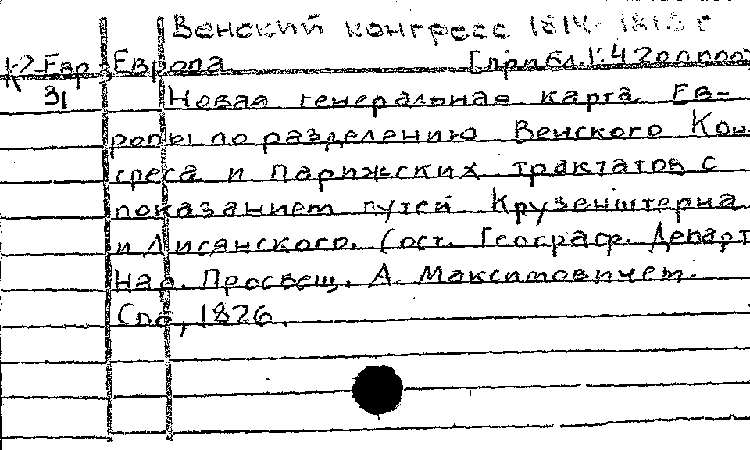 Венский конгресс 1814-1815 г
К2-Евр Европа [прибл. 1:42000000
31 Новая генеральная карта Ев-
ропы по разделению Венского Кон
греса и Парижских трактатов с
показанием путей Крузенштерна
и Лисянского. Сост. Географ. Департ
Нар. Просвещ. А. Максимовичем.
Спб, 1826.